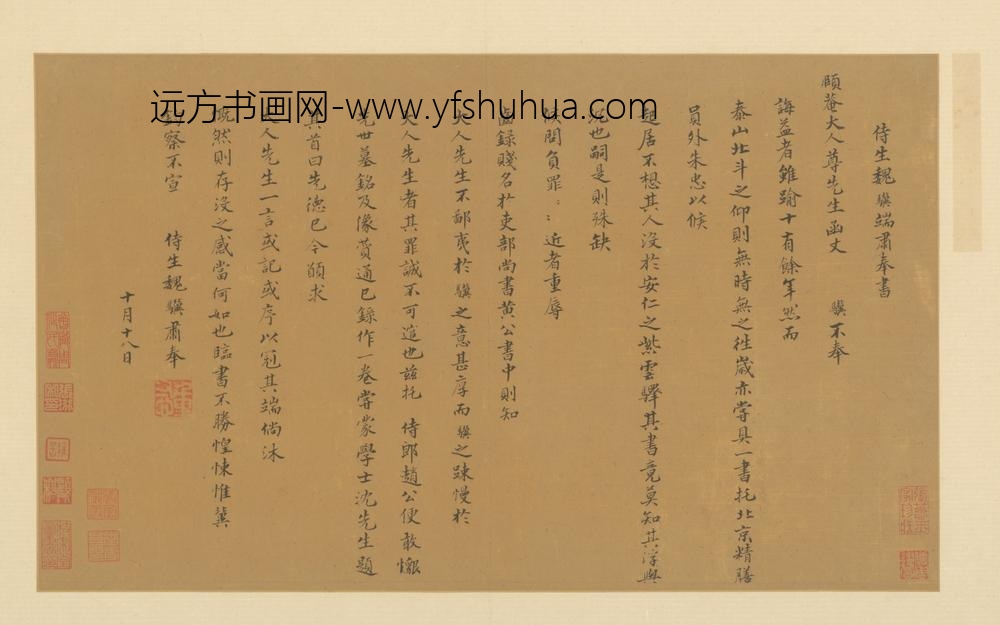 侍生魏驥端肅奉書
頤菴大人尊先生函丈 驥不奉
誨益者雖踰十有餘年然而
泰山北斗之仰則無時無之往歲亦嘗具一書托北京精膳
員外朱忠以候
起居不想其人沒於安仁之紫雲驛其書竟莫知其浮與
沉也嗣是則殊缺
候問負罪：：近者重辱
錄賤名於吏部尚書黃公書中則知
大人先生不鄙夷於驥之意甚厚而驥之踈慢於
大人先生者其罪誠不可逭也茲托 侍郎趙公便敢懺
先世墓銘及像賛通已錄作一卷嘗蒙學士沈先生題
其首曰先德已今頠求
大人先生一言或記或序以冠其端倘沐
慨然則存沒之感當何如也臨書不勝惶悚惟冀
察不宣 侍生魏驥肅奉
十月十八日
远方书画网-www.yfshuhua.com